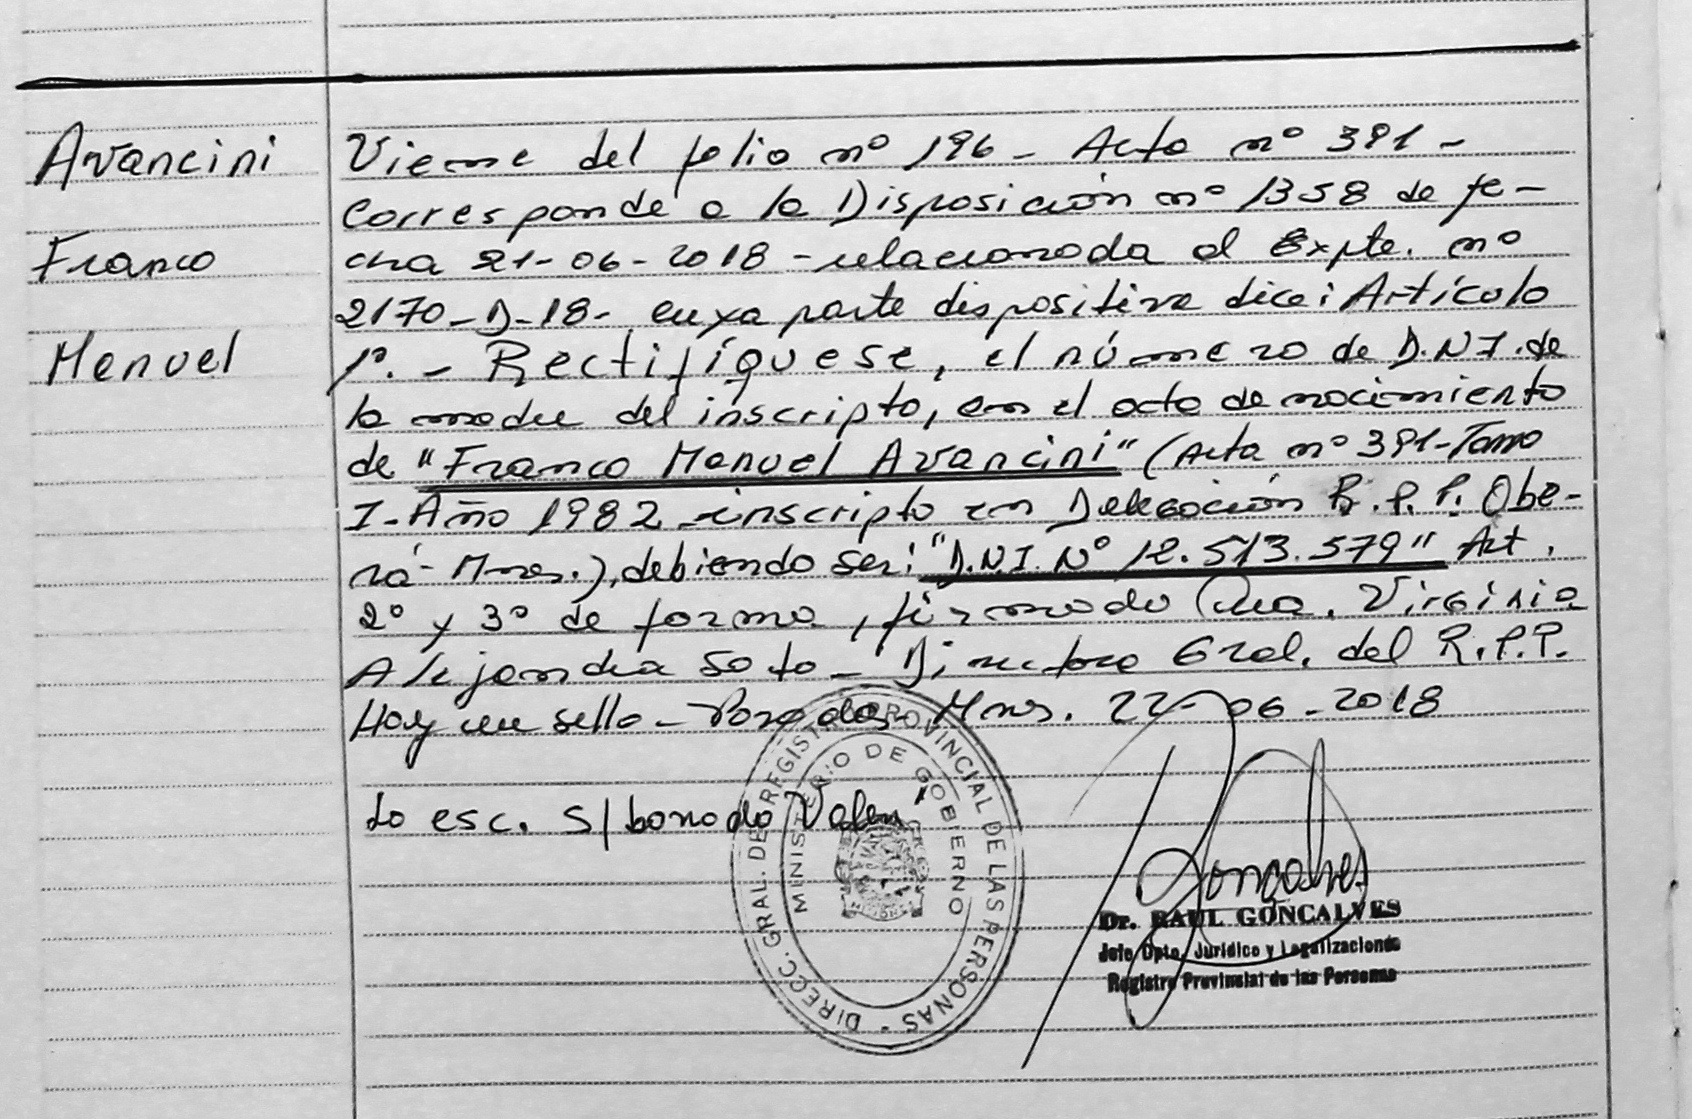 Avancini
Franco
Manuel
Viene del folio nº 196 - Acta nº 391 -
Corresponde a la Disposición nº 1358 de fe-
cha 21-06-2018 - relacionada al Expte. nº
2170-D-18- cuya parte dispositiva dice: Artículo
1º. - Rectifíquese, el número de D.N.I. de
la madre del inscripto, en el acta de nacimiento
de "Franco Manuel Avancini" (Acta nº 391-Tomo
I-Año 1982 -inscripto en Delegación R.P.P. Obe-
rá- Mnes.), debiendo ser: "D.N.I. Nº 12.513.579" Art.
2º y 3º de forma, firmado Dra. Virginia
Alejandra Soto - Directora Gral. del R.P.P.
Hay un sello - Posadas- Mnes. 22-06-2018
Lo esc. s/ borrado Vale
DIRECC. GRAL. DE REGISTRO PROVINCIAL DE LAS PERSONAS -
MINISTERIO DE GOBIERNO
MISIONES
Goncalves
Dr. RAUL GONCALVES
Jefe Dpto. Jurídico y Legalizaciones
Registro Provincial de las Personas